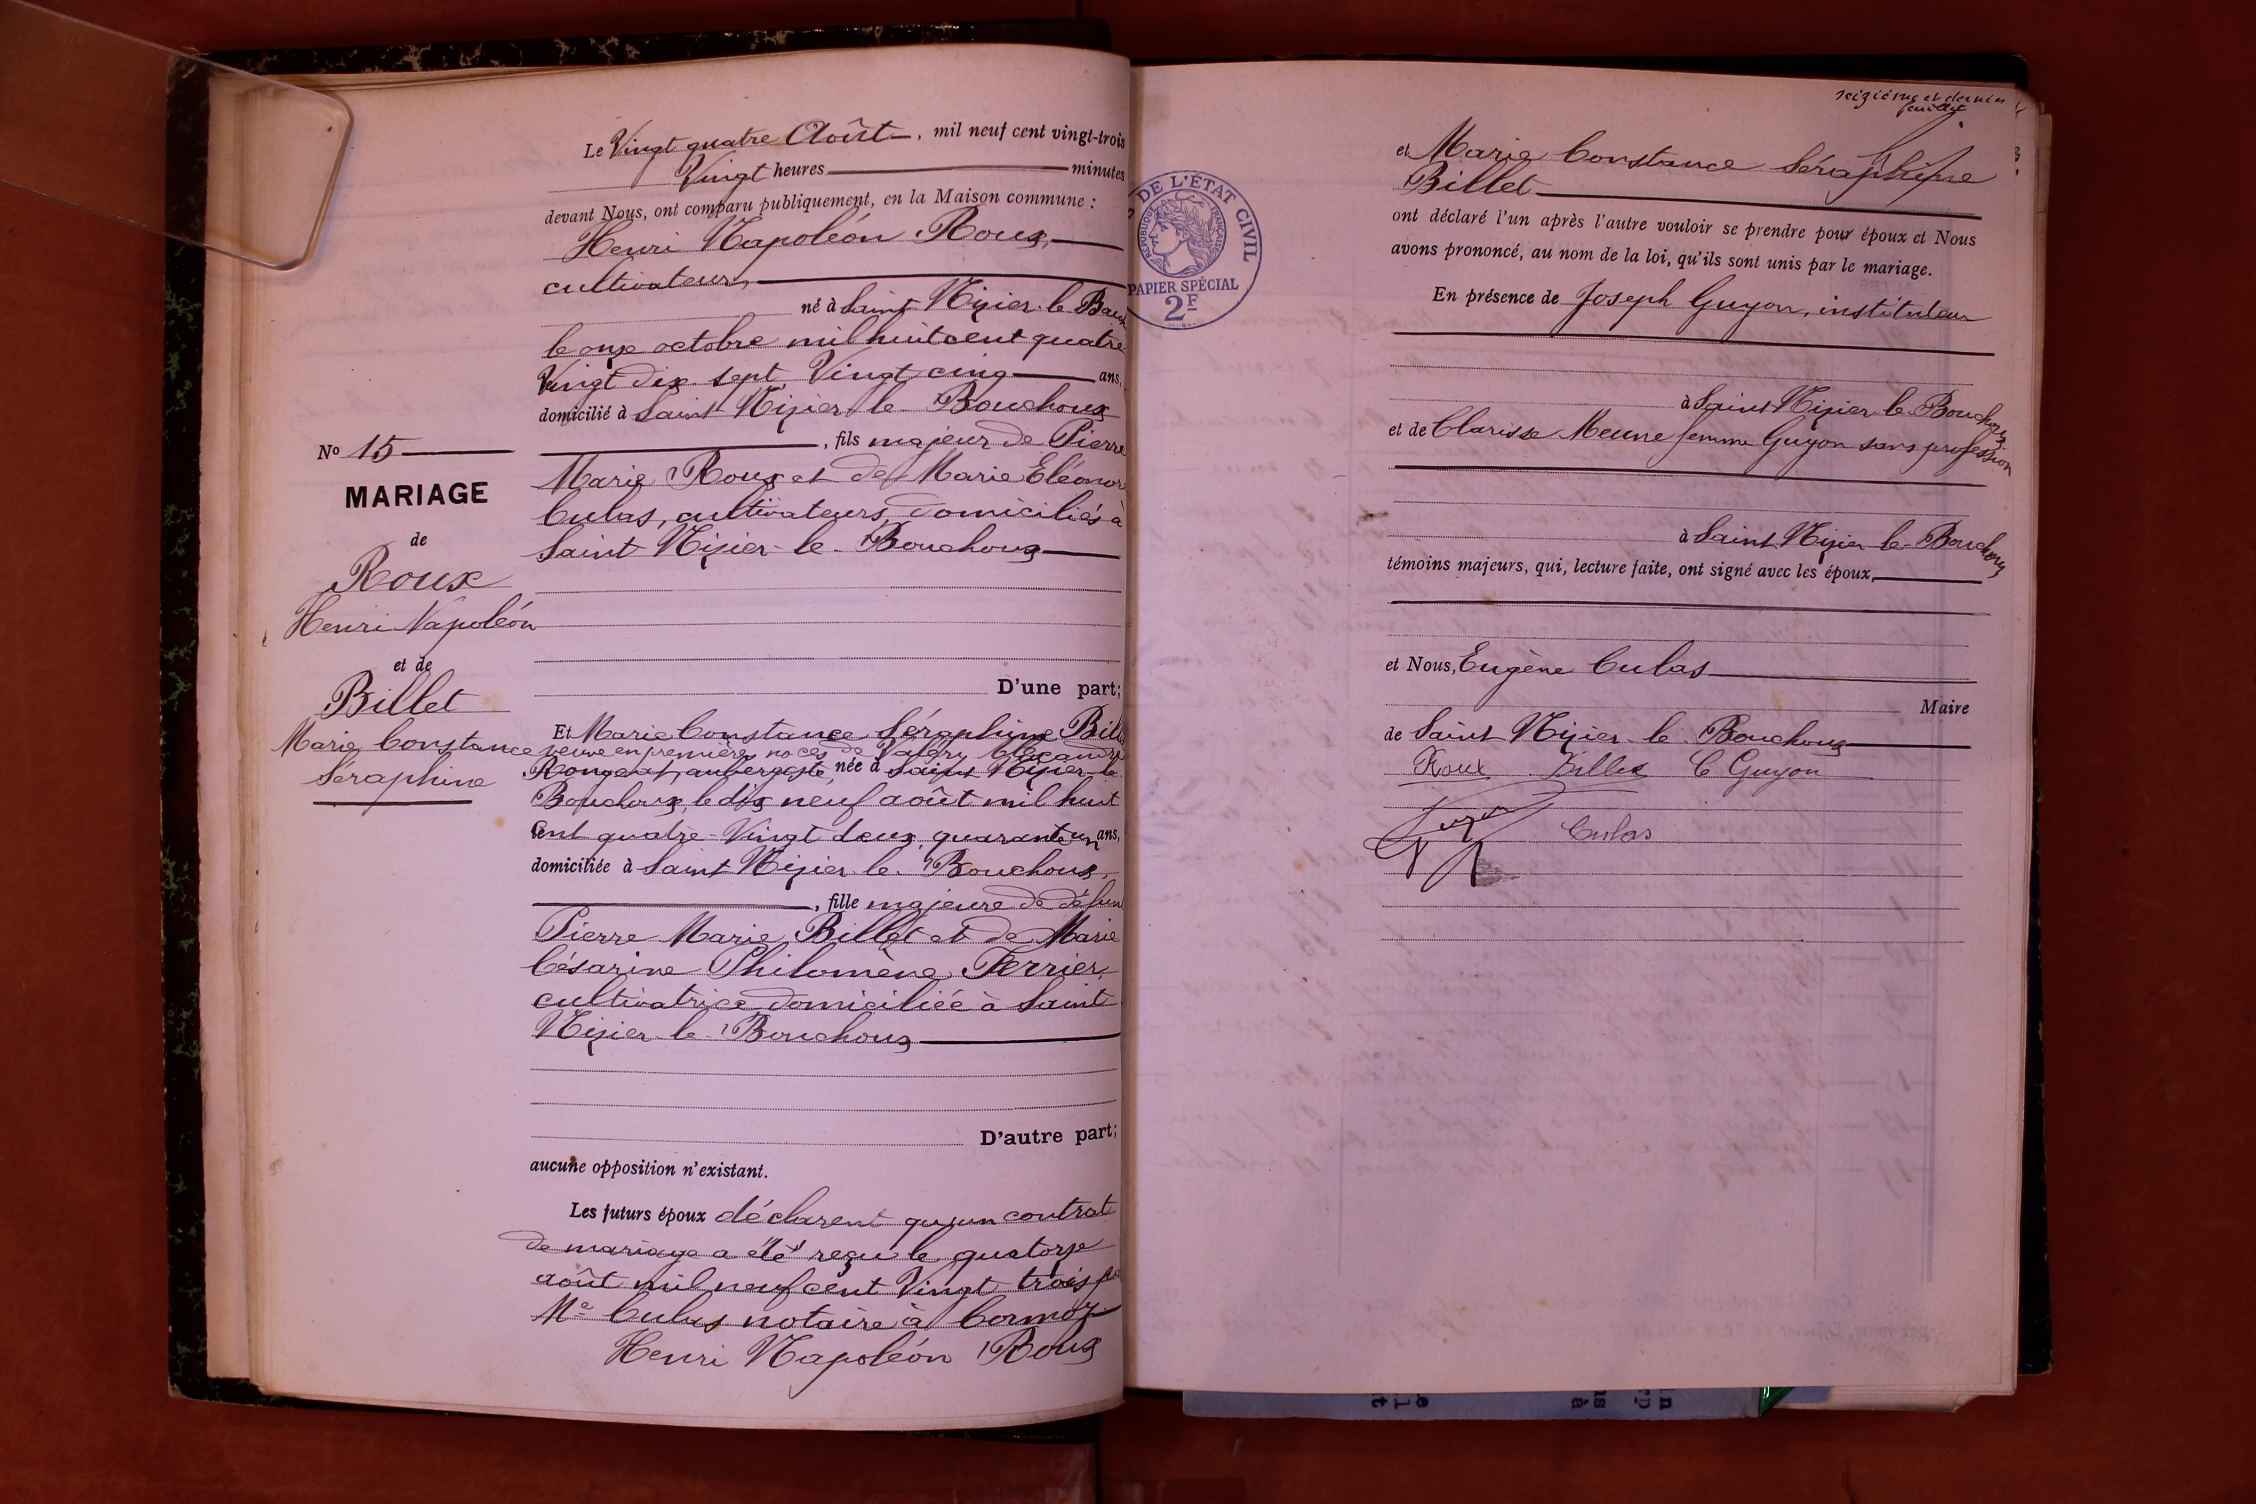 Le Vingt quatre Août, mil neuf cent vingt-trois
Vingt heures minutes
devant Nous, ont comparu publiquement, en la Maison commune :
Henri Napoléon Roux,
cultivateur,
né à Saint Nizier le Boux
le onze octobre mil huit cent quatre
Vingt dix sept, Vingt cinq ans,
domicilié à Saint Nizier le Bouchoux
, fils majeur de Pierre
Marie Roux et de Marie Eléonore
Culas, cultivateurs, domiciliés à
Saint Nizier le Bouchoux
D'une part;
Et Marie Constance Séraphine Bill
veuve en premières noces de Valéry Alexandre
Rongeat, aubergiste, née à Saint Nizier le
Bouchoux, le dix neuf août mil huit
cent quatre-Vingt deux, quarante un ans,
domiciliée à Saint Nizier le Bouchoux,
, fille majeure de défun
Pierre Marie Billet et de Marie
Césarine Philomène Ferrier,
cultivatrice domiciliée à Saint
Nizier le Bouchoux
D'autre part;
aucune opposition n'existant.
Les futurs époux déclarent qu'un contrat
de mariage a été reçu le quatorze
août mil neuf cent Vingt trois par
Me Culas notaire à Cormoz
Henri Napoléon Roux
No 15
MARIAGE
de
Roux
Henri Napoléon
et de
Billet
Marie Constance
Séraphine
DE L'ÉTAT CIVIL
RÉPUBLIQUE FRANÇAISE
PAPIER SPÉCIAL
2F
seizième et dernier
feuillet
et Marie Constance Séraphine
Billet
ont déclaré l'un après l'autre vouloir se prendre pour époux et Nous
avons prononcé, au nom de la loi, qu'ils sont unis par le mariage.
En présence de Joseph Guyon, instituteur
à Saint Nizier le Bouchoux
et de Clarisse Meune femme Guyon sans profession
à Saint Nizier le Bouchoux
témoins majeurs, qui, lecture faite, ont signé avec les époux,
et Nous, Eugène Culas
Maire
de Saint Nizier le Bouchoux
Roux Billet C Guyon
Guyon
Culas